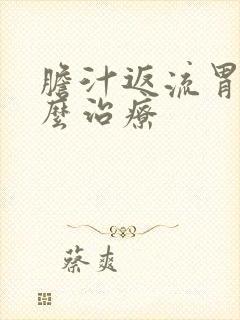 膽汁返流胃
麼治療
蔡爽